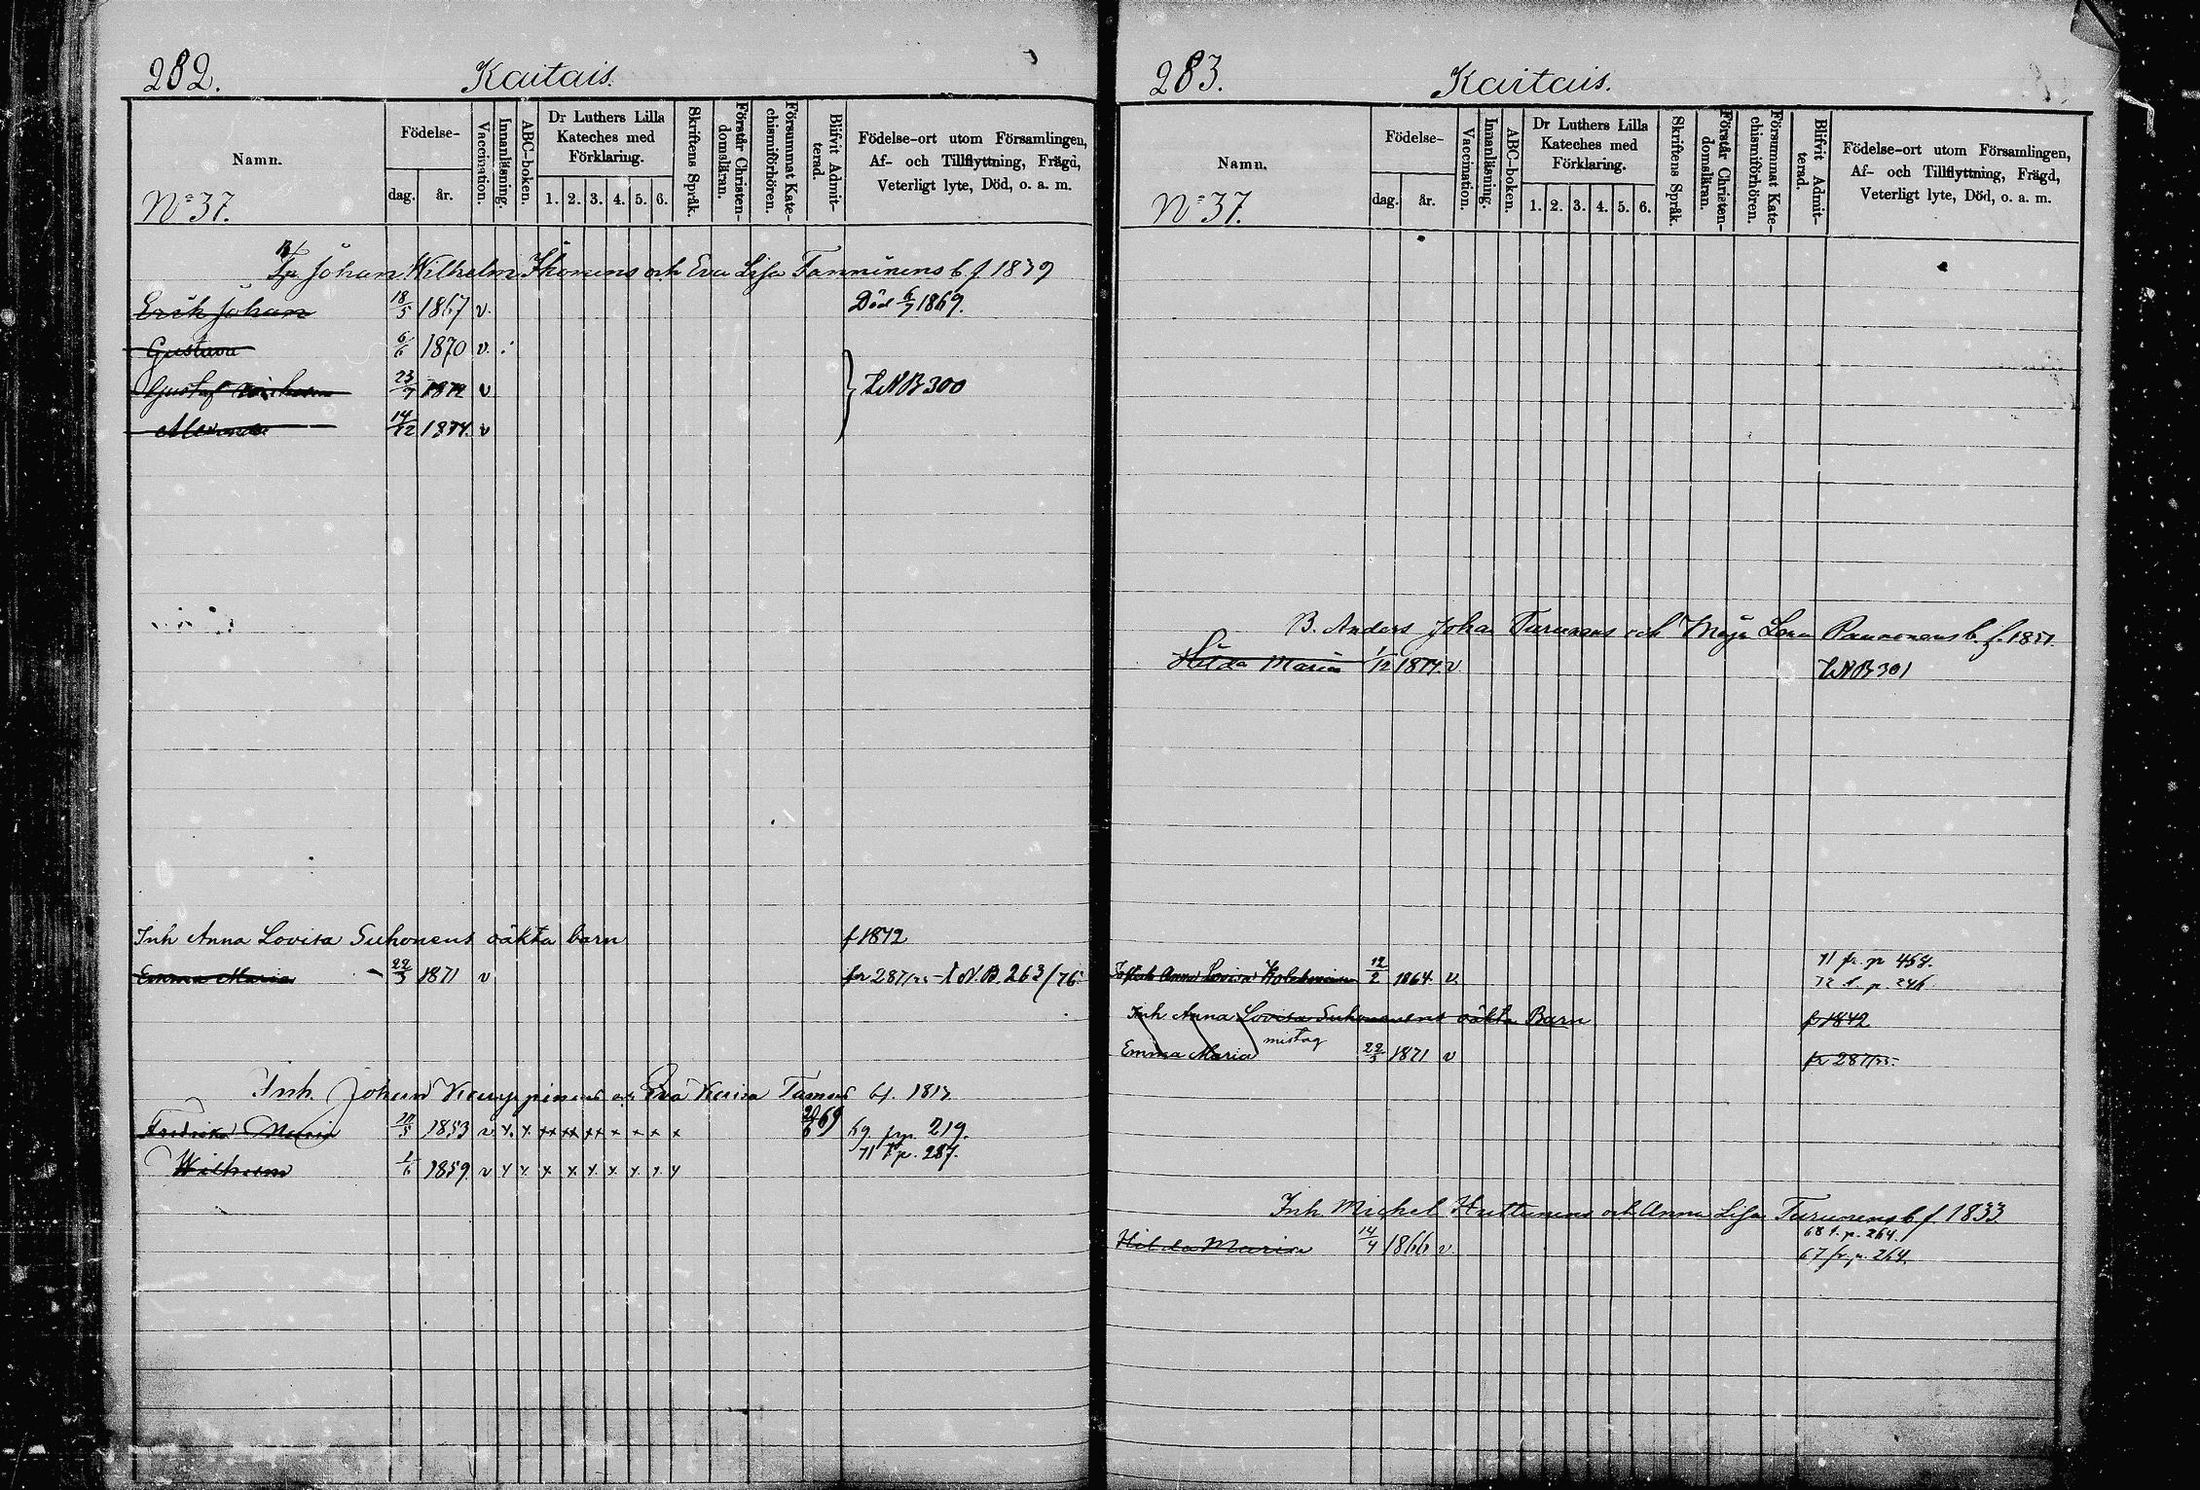 282.
Kaitais.
Namn.
Födelse-
dag.
år.
Vaccination.
Innanläsning.
ABC-boken.
Dr Luthers Lilla
Kateches med
Förklaring.
1. 2. 3. 4. 5. 6.
Skriftens Språk.
Förstår Christen-
domsläran.
Försummat Kate-
chismiförhören.
Blifvit Admit-
terad.
Födelse-ort utom Församlingen,
Af- och Tillflyttning, Frägd,
Veterligt lyte, Död, o. a. m.
No 37.
Johan Wilhelm Ikonens och Eva Lisa Tanninens b f 1839
Erik Johan 18/5 1867 v. Död 6/7 1869.
Gustava 6/6 1870 v.
Gustaf 23/7 1872 v LNB 300
Alexander 14/12 1874. v
Inh Anna Lovisa Suhonens oäkta barn f 1872
Emma Maria 22/3 1871 v fr 287/75 - t N.B. 263/76.
Inh. Johan Kauppinens och Eva Tamens bf. 1813
Fredrika Maria 20/3 1853 v x x xx xx xx x x x x 20/6 69 69 fr p. 219.
71 t p. 287.
Wilhelm 1/6 1859. v x x x x x x x x x
283.
Kaitais.
Namn.
Födelse-
dag.
år.
Vaccination.
Innanläsning.
ABC-boken.
Dr Luthers Lilla
Kateches med
Förklaring.
1. 2. 3. 4. 5. 6.
Skriftens Språk.
Förstår Christen-
domsläran.
Försummat Kate-
chismiförhören.
Blifvit Admit-
terad.
Födelse-ort utom Församlingen,
Af- och Tillflyttning, Frägd,
Veterligt lyte, Död, o. a. m.
No 37.
B. Anders Johan Turunens och Maja Lena b. f. 1851.
Hilda Maria 1/12 1874. v LNB 301
71 fr. p 454.
Anna Lovisa 12/2 1864. v. 72 t. p. 246.
Inh Anna Lovisa Suhonens oäkta Barn f 1842
mistag
Emma Maria 22/3 1871 v fr 287/75.
Inh Michel Huttunens och Anna Lisa Turunens b f 1833
68 t. p. 264.
Hilda Maria 14/4 1866 v
67 fr. p. 264.